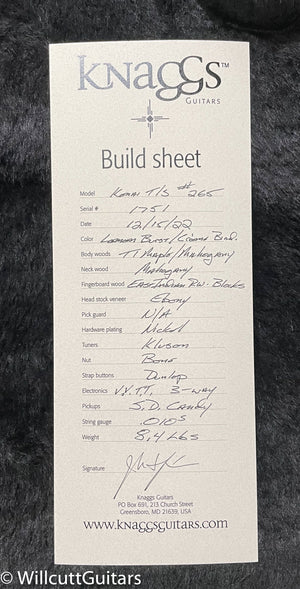 KNAGGS™
GUITARS
Build sheet
Model Kenai T/S #265
Serial # 1751
Date 12/15/22
Color Lemon Burst/Creme Bind.
Body woods T1 Maple/Mahogany
Neck wood Mahogany
Fingerboard wood East Indian RW. Blocks
Head stock veneer Ebony
Pick guard N/A
Hardware plating Nickel
Tuners Kluson
Nut Bone
Strap buttons Dunlop
Electronics V.V.T.T. 3-way
Pickups S.D. Candy
String gauge .010s
Weight 8.4 Lbs
Signature
Knaggs Guitars
PO Box 691, 213 Church Street
Greensboro, MD 21639, USA
www.knaggsguitars.com
© WillcuttGuitars